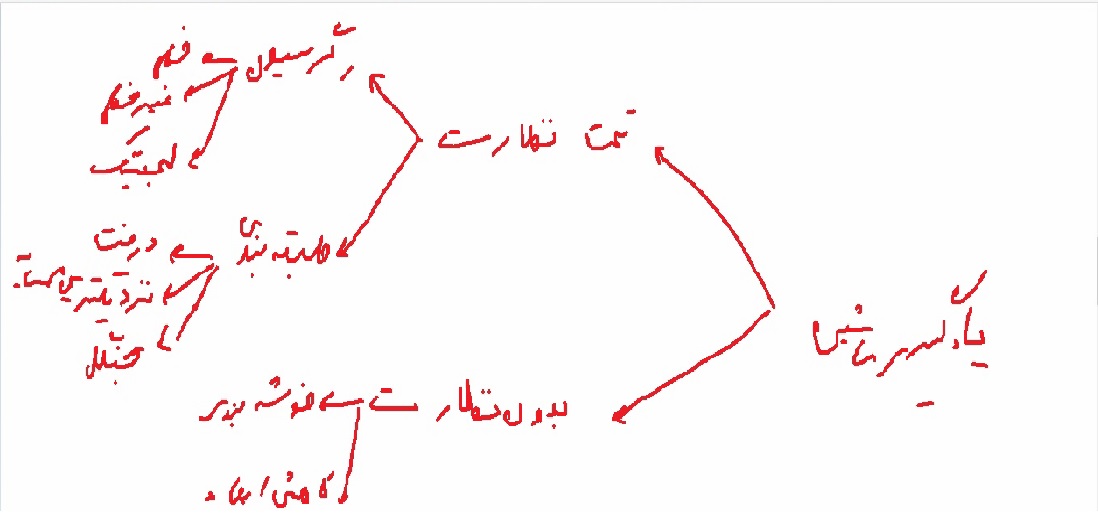 یادگیری ماشین
تحت نظارت
رگرسیون
خطی
غیرخطی
لجستیک
طبقه بندی
درخت
نزدیکترین همسایه
جنگل
بدون نظارت
خوشه بندی
کاهش ابعاد